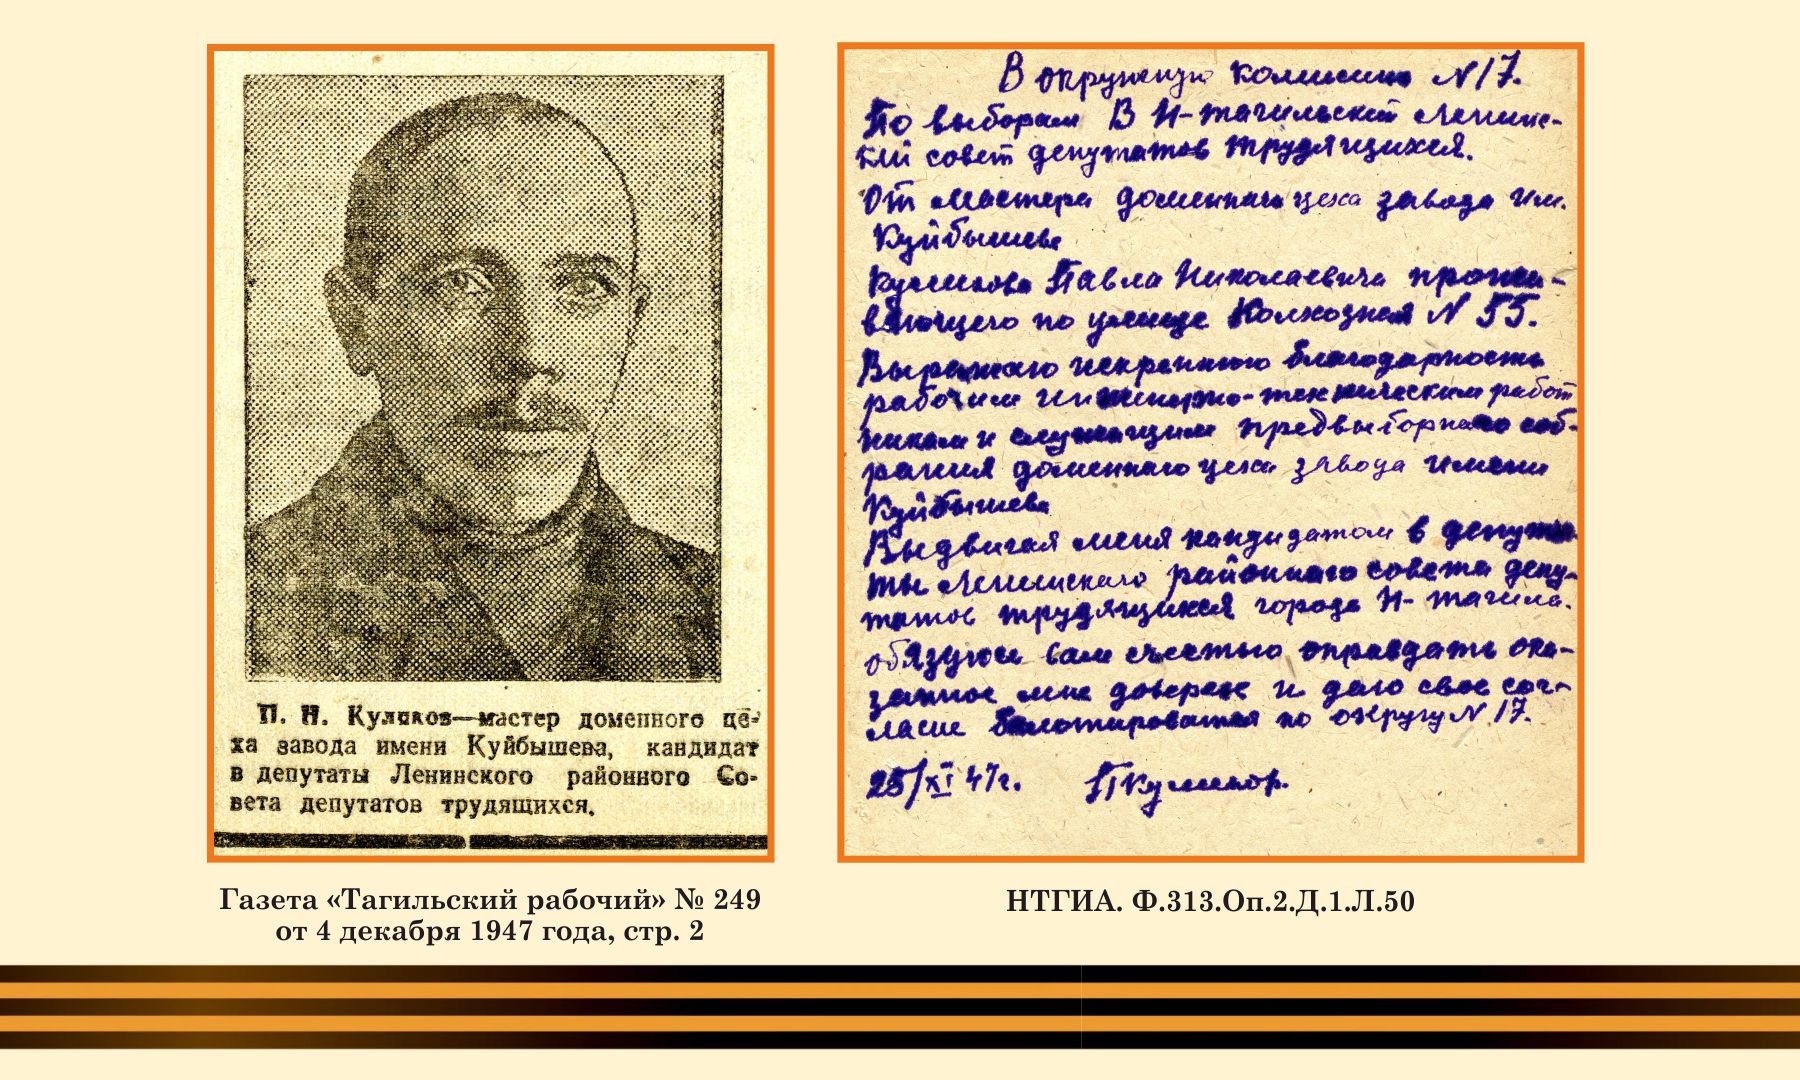 П. Н. Куликов—мастер доменного це-
ха завода имени Куйбышева, кандидат
в депутаты Ленинского районного Со-
вета депутатов трудящихся.
Газета «Тагильский рабочий» № 249
от 4 декабря 1947 года, стр. 2
В окружную комисию N 17.
По выборам В Н-тагильский Ленинс-
кий совет депутатов трудящихся.
От мастера доменнаго цеха завода им.
Куйбышева
Куликова Павла Николаевича прожи-
вающего по улице Колхозная N 55.
Выражаю искреннюю благодарность
рабочим инженерно-техническим работ
никам и служащим предвыборнаго соб-
рания доменнаго цеха завода имени
Куйбышева
Выдвигая меня кандидатом в депута
ты Ленинскаго районнаго совета депу-
татов трудящихся города Н-тагила.
обязуюсь вам счестью оправдать ока-
занное мне доверие и даю свое сог-
ласие балотироватся по округу N 17.
25/XI 47г. ПКуликов.
НТГИА. Ф.313.Оп.2.Д.1.Л.50